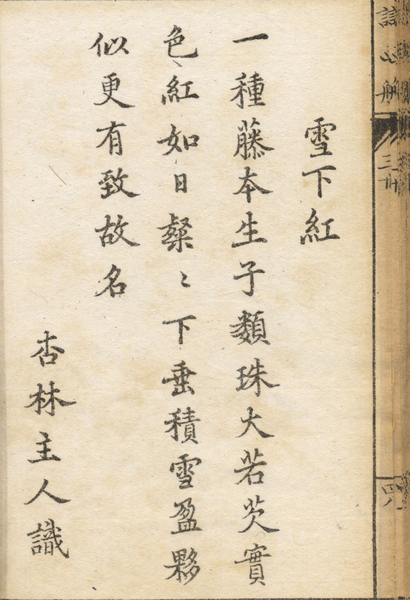 雪下紅
一種藤本生子類珠大若芡實
色紅如日粲〻下垂積雪盈夥
似更有致故名
杏林主人識